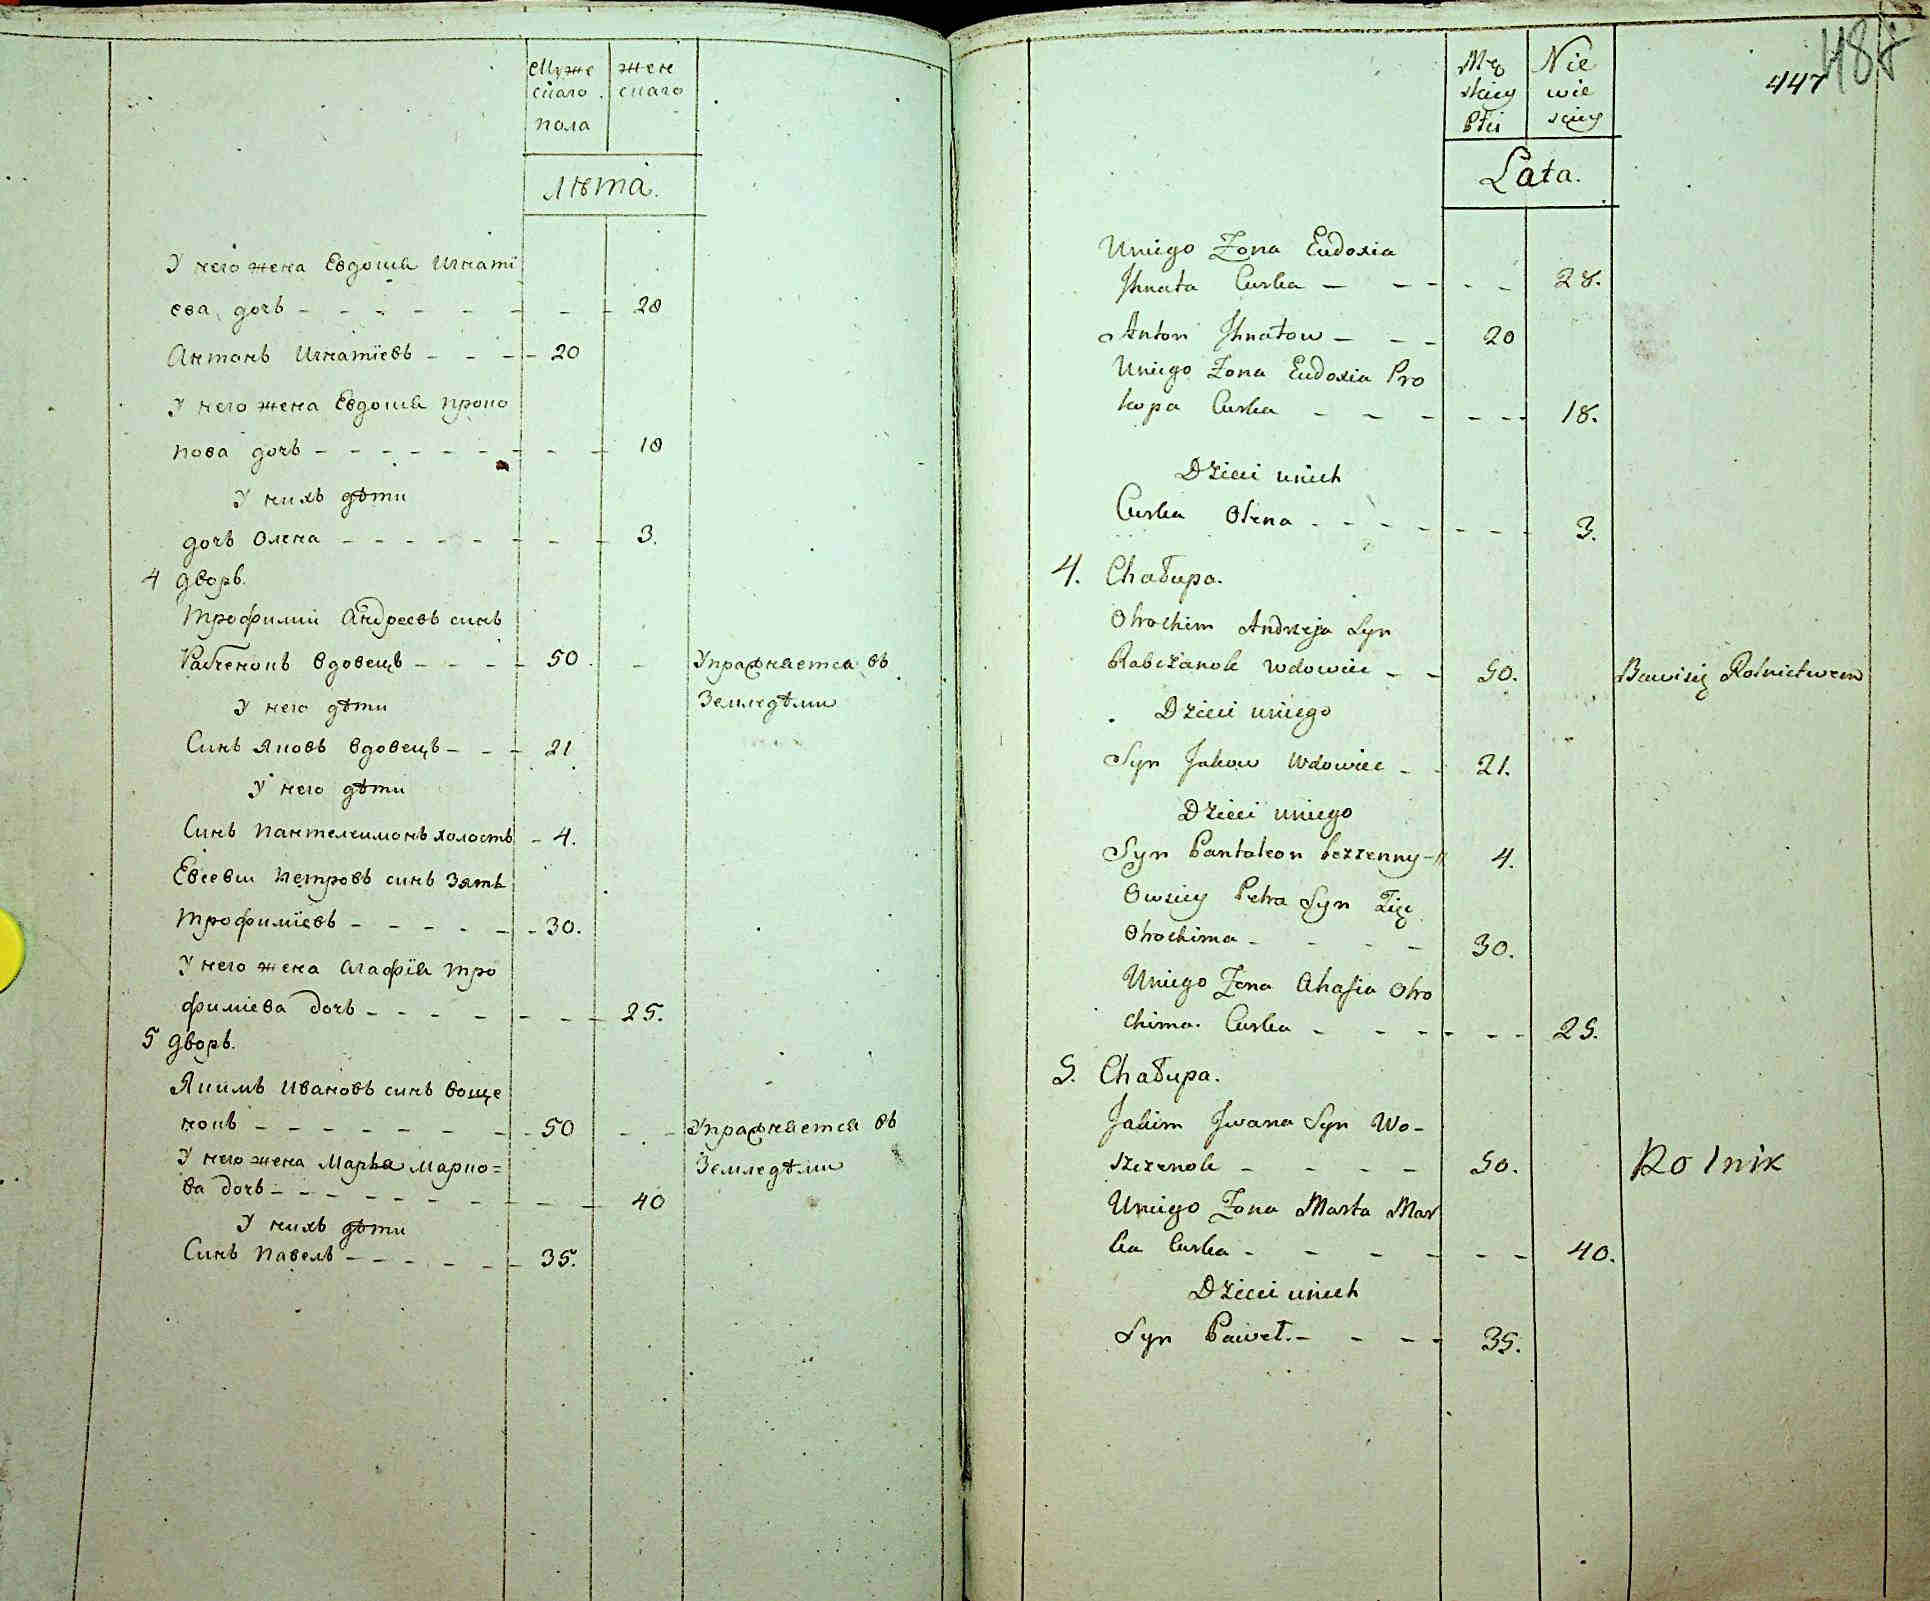 Муже
скаго
пола
жен
скаго
Лѣта.
У него жена Евдокія Игнаті
ева дочь - - - - - - - 28
Антонъ Игнатіевъ - - - - 20
У него жена Евдокія Проко
пова дочь - - - - - - - - 18
У нихъ дѣти
дочь Олена - - - - - - - - 3.
4 дворъ.
Трофимий Андреевъ синъ
Рабченокъ вдовецъ - - - - 50. - Упражняется въ
Земледѣлии
У него дѣти
Синъ Яковъ вдовецъ - - - 21
У него дѣти
Синъ Пантелеимонъ холостъ - 4.
Евсевии Петровъ синъ Зять
Трофиміевъ - - - - - - 30.
У него жена Агафія Тро
фиміева дочь - - - - - - - - 25.
5 дворъ.
Якимъ Ивановъ синъ Воще
нокъ - - - - - - - - 50 - - Упражняется въ
Земледѣлии
У него жена Марья Марко=
ва дочь - - - - - - - - - 40
У нихъ дѣти
Синъ Павелъ - - - - - - 35.
Mę
skiey
Płci
Nie
wie
sciey
447
Lata.
Uniego Żona Eudoxia
Jhnata Curka - - - - - 28.
Anton Jhnatow - - - 20
Uniego Żona Eudoxia Pro
kopa Curka - - - - - - 18.
Dzieci unich
Curka Olena - - - - - - - 3.
4. Chałupa.
Otrochim Andrzeja Syn
Rabczanok wdowiec - - 50. Bawisię Rolnictwem
Dzieci uniego
Syn Jakow Wdowiec - - 21.
Dzieci uniego
Syn Pantaleon bezzenny - 4.
Owsiey Petra Syn Zięć
Otrochima - - - - 30.
Uniego Żona Ahafia Otro
chima. Curka - - - - - - 25.
5. Chałupa.
Jakim Jwana Syn Wo-
szczenok - - - - - 50. Rolnik
Uniego Żona Marta Mar
ka Curka - - - - - - - 40.
Dzieci unich
Syn Paweł. - - - - 35.